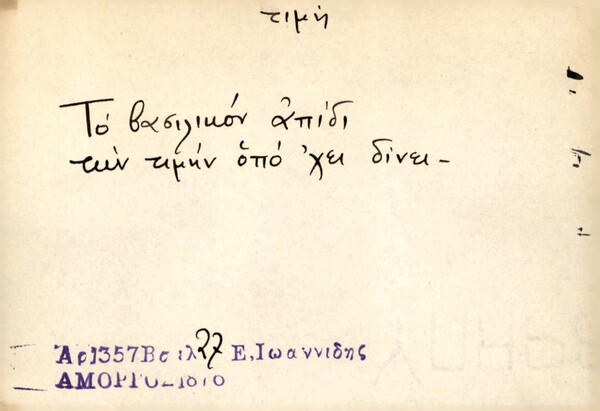 τιμή
Τό βασιλικόν ἀπίδι
τήν τιμήν ὁπὄχει δίνει –
Ἀρ1357Βσιλ27 Ε,Ιωαννιδης
ΑΜΟΡΓΟΣ1876